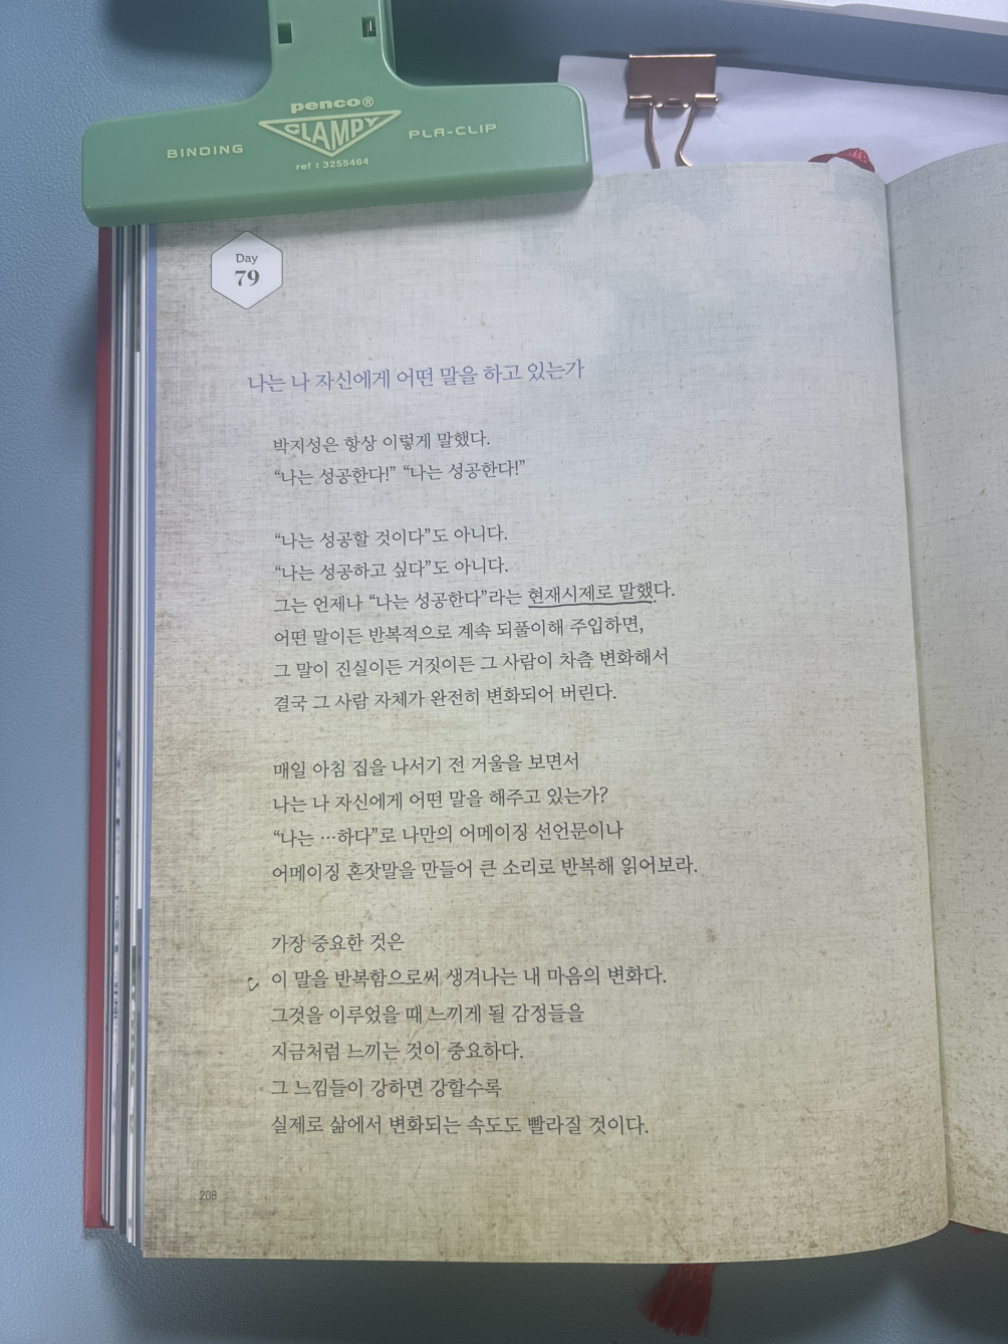 penco®
CLAMPY
BINDING
PLA-CLIP
ref : 3255464
Day
79
나는 나 자신에게 어떤 말을 하고 있는가
박지성은 항상 이렇게 말했다.
“나는 성공한다!” “나는 성공한다!”
“나는 성공할 것이다”도 아니다.
“나는 성공하고 싶다”도 아니다.
그는 언제나 “나는 성공한다”라는 현재시제로 말했다.
어떤 말이든 반복적으로 계속 되풀이해 주입하면,
그 말이 진실이든 거짓이든 그 사람이 차츰 변화해서
결국 그 사람 자체가 완전히 변화되어 버린다.
매일 아침 집을 나서기 전 거울을 보면서
나는 나 자신에게 어떤 말을 해주고 있는가?
“나는 …하다”로 나만의 어메이징 선언문이나
어메이징 혼잣말을 만들어 큰 소리로 반복해 읽어보라.
가장 중요한 것은
이 말을 반복함으로써 생겨나는 내 마음의 변화다.
그것을 이루었을 때 느끼게 될 감정들을
지금처럼 느끼는 것이 중요하다.
그 느낌들이 강하면 강할수록
실제로 삶에서 변화되는 속도도 빨라질 것이다.
208